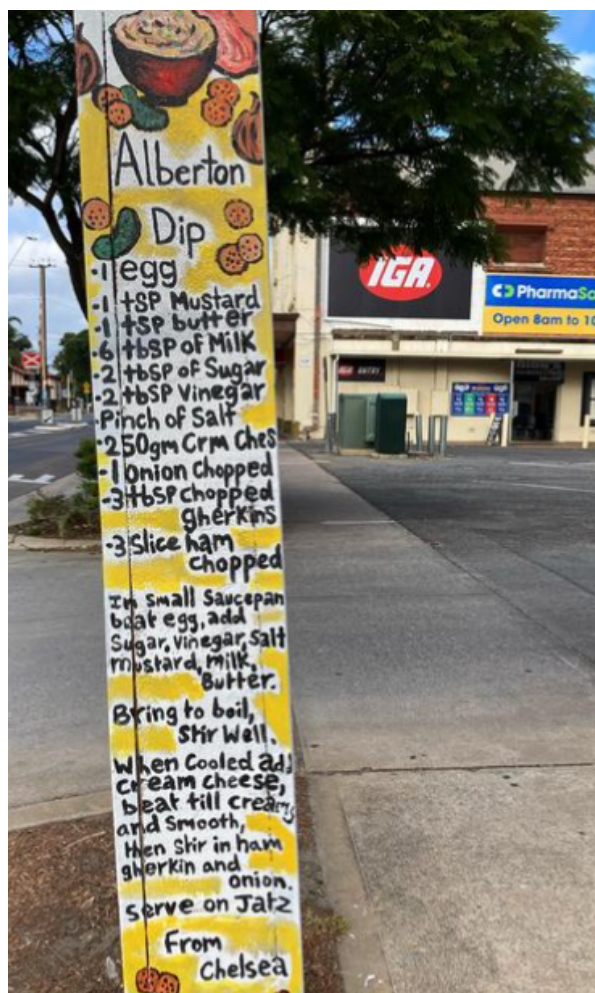 Alberton
Dip
-1 egg
-1 tSP Mustard
-1 tSP butter
-6 tbSP of Milk
-2 tbSP of Sugar
-2 tbSP Vinegar
-Pinch of Salt
-250gm Crm Ches
-1 onion Chopped
-3 tbSP chopped
gherkins
-3 Slice ham
chopped
In small Saucepan
beat egg, add
Sugar, vinegar, salt
mustard, milk,
Butter.
Bring to boil,
Stir Well.
When Cooled add
cream cheese,
beat till creamy
and Smooth,
then Stir in ham
gherkin and
onion.
Serve on Jatz
From
Chelsea
IGA
PharmaSa
Open 8am to 10
IGA ENTRY